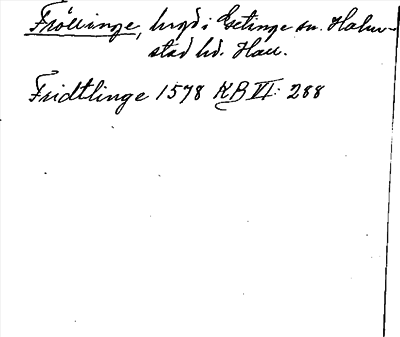 Fröllinge, bygd i Getinge sn. Halm-
stad hd. Hall.
Fridtlinge 1578 KB VI: 288